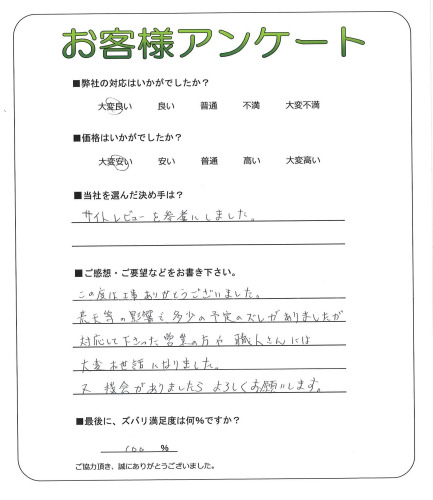 お客様アンケート
■弊社の対応はいかがでしたか？
大変良い 良い 普通 不満 大変不満
■価格はいかがでしたか？
大変安い 安い 普通 高い 大変高い
■当社を選んだ決め手は？
サイトレビューを参考にしました。
■ご感想・ご要望などをお書き下さい。
この度は工事ありがとうございました。
荒天等の影響で多少の予定のズレがありましたが
対応して下さった営業の方や職人さんには
大変お世話になりました。
又機会がありましたらよろしくお願いします。
■最後に、ズバリ満足度は何%ですか？
100 %
ご協力頂き、誠にありがとうございました。